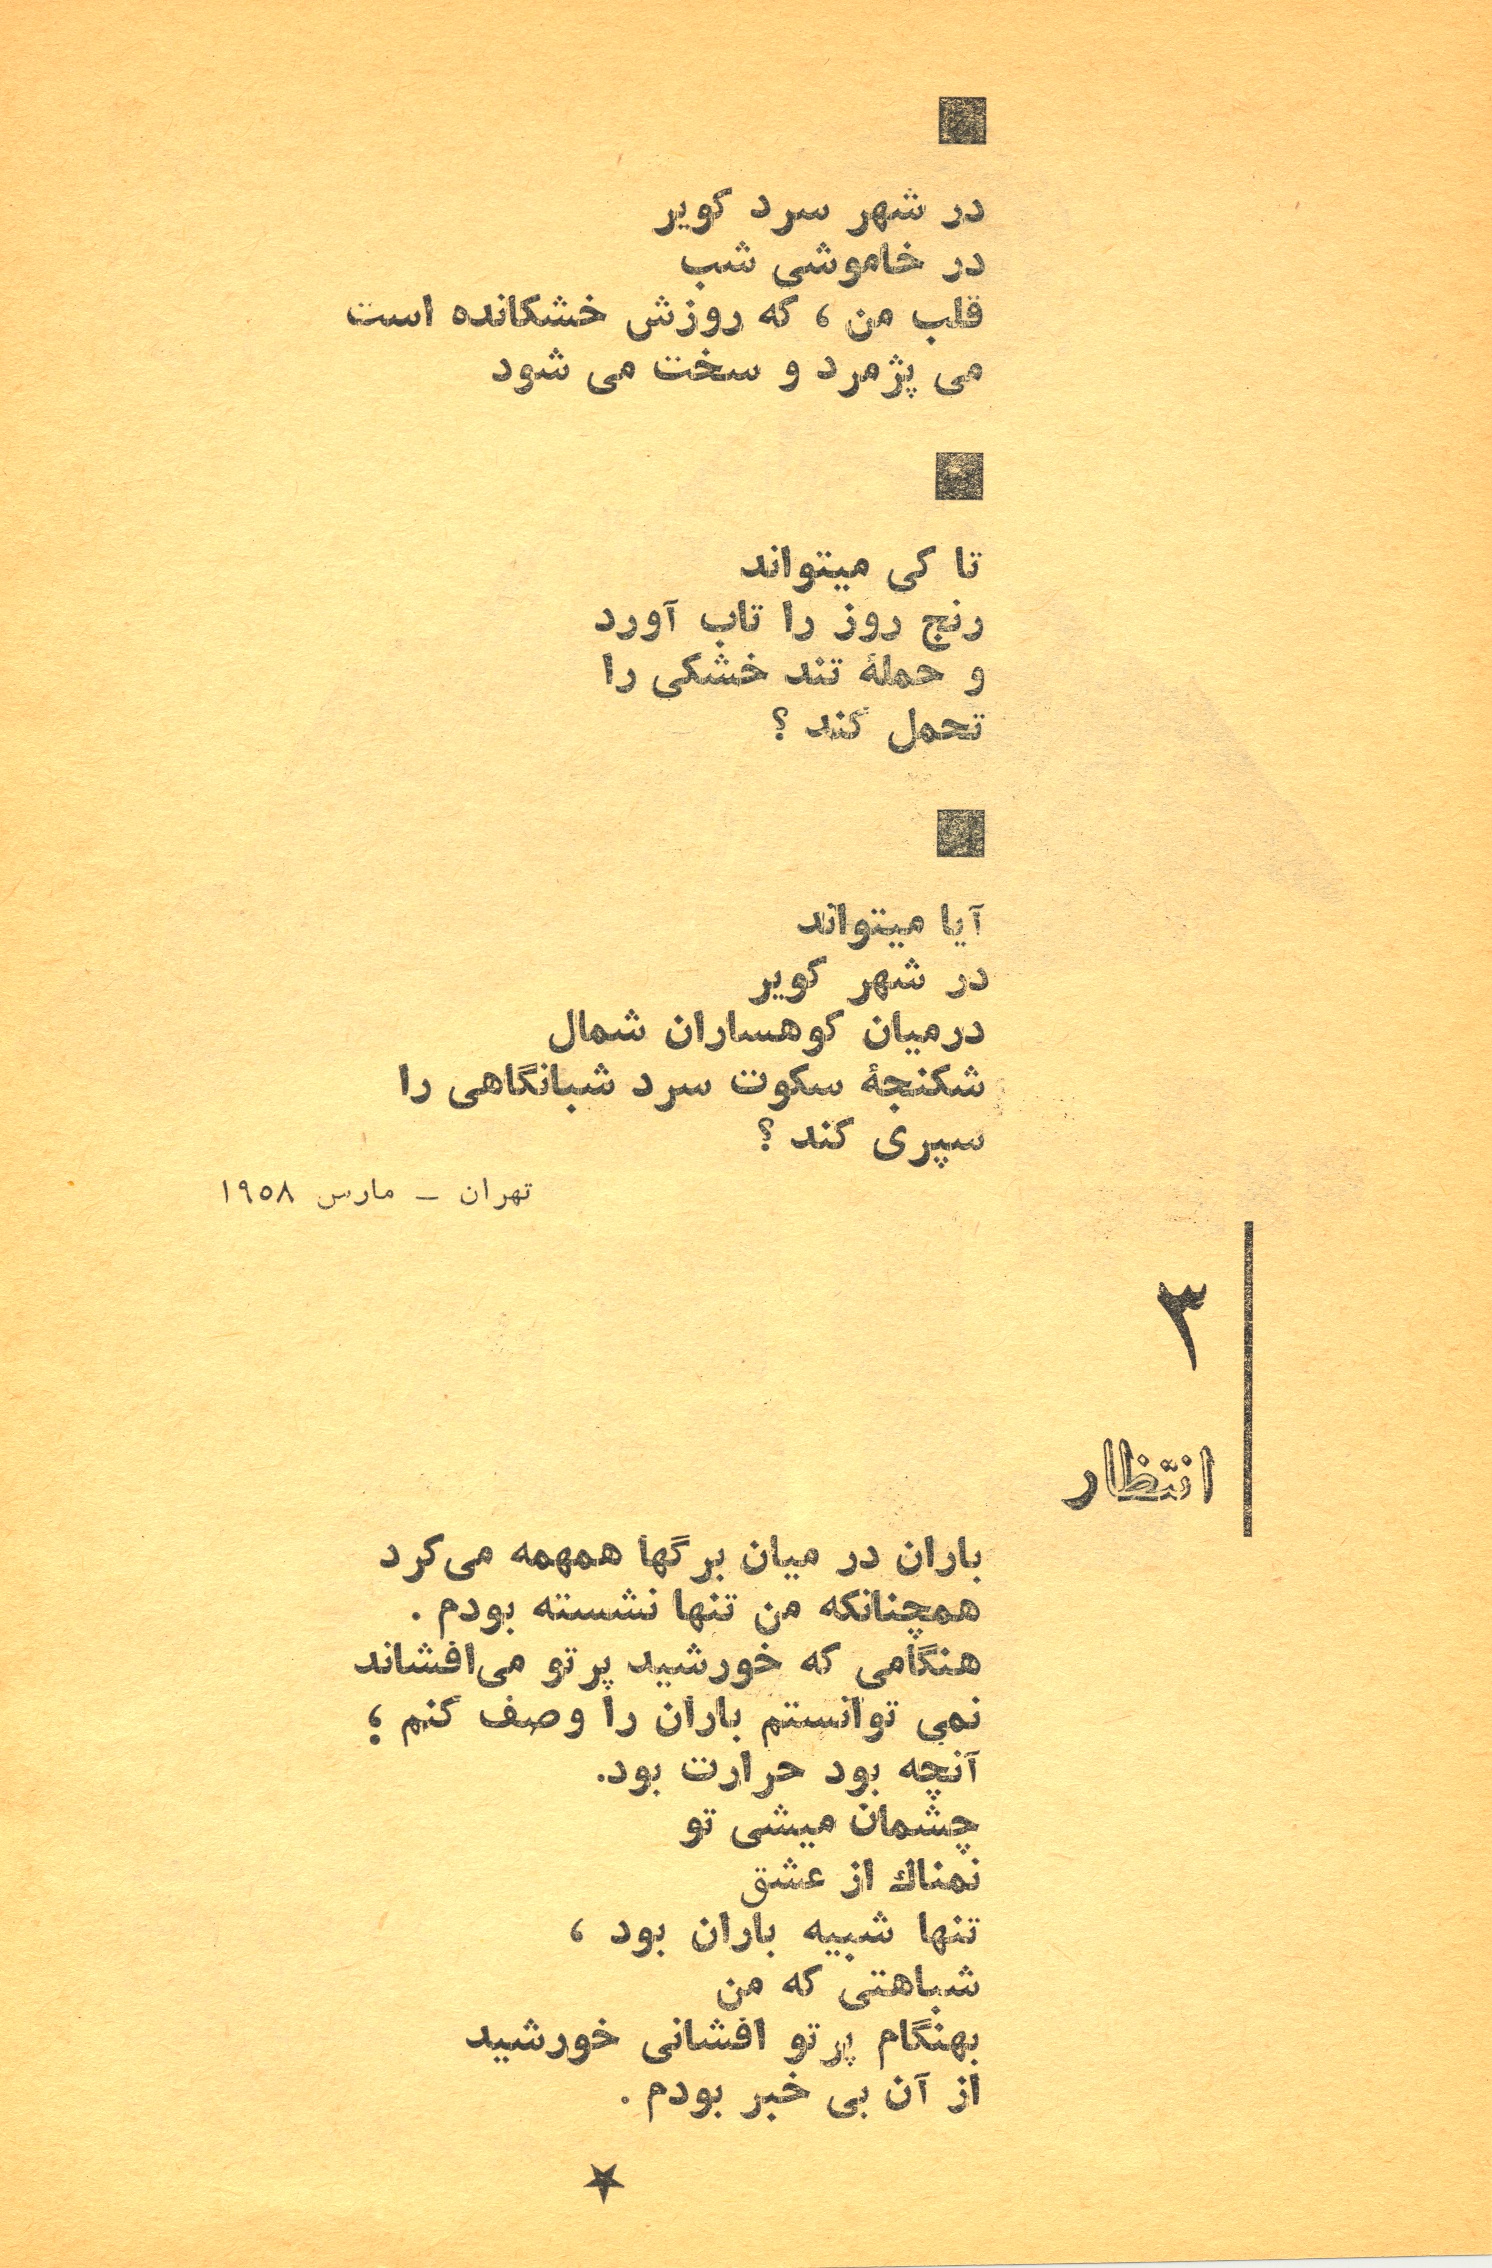 در شهر سرد کویر
در خاموشی شب
قلب من ، که روزش خشکانده است
می پژمرد و سخت می شود
تا کی میتواند
رنج روز را تاب آورد
و حملهٔ تند خشکی را
تحمل کند ؟
آیا میتواند
در شهر کویر
درمیان کوهساران شمال
شکنجهٔ سکوت سرد شبانگاهی را
سپری کند ؟
تهران – مارس ۱۹۵۸
۳
انتظار
باران در میان برگها همهمه می‌کرد
همچنانکه من تنها نشسته بودم .
هنگامی که خورشید پرتو می‌افشاند
نمی توانستم باران را وصف کنم ؛
آنچه بود حرارت بود.
چشمان میشی تو
نمناك از عشق
تنها شبیه باران بود ،
شباهتی که من
بهنگام پرتو افشانی خورشید
از آن بی خبر بودم .